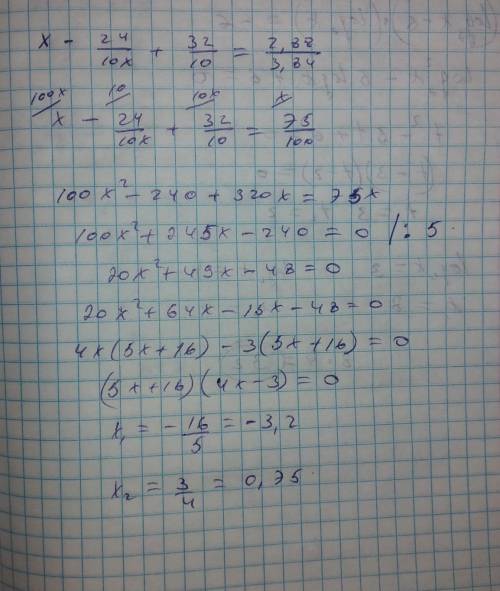 x - 24/10x + 32/10 = 2,88/3,84
100x 10 10x x
x - 24/10x + 32/10 = 75/100
100x² - 240 + 320x = 75x
100x² + 245x - 240 = 0 /: 5
20x² + 49x - 48 = 0
20x² + 64x - 15x - 48 = 0
4x(5x+16) - 3(5x+16) = 0
(5x+16)(4x-3) = 0
x₁ = -16/5 = -3,2
x₂ = 3/4 = 0,75